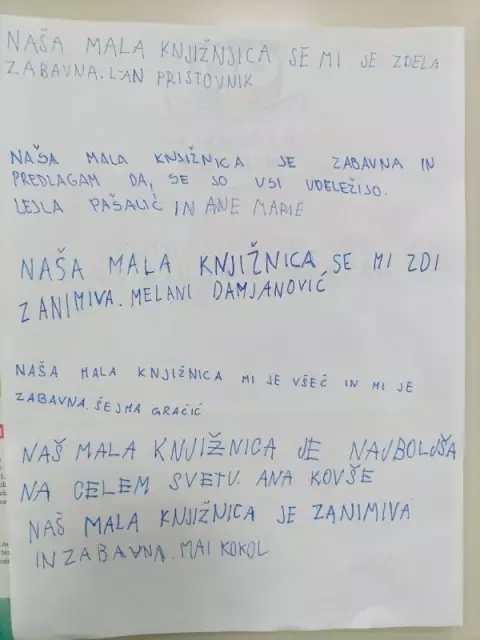 NAŠA MALA KNJIŽNJICA SE MI JE ZDELA
ZABAVNA. LAN PRISTOVNIK
NAŠA MALA KNJIŽNICA JE ZABAVNA IN
PREDLAGAM DA, SE JO VSI UDELEŽIJO.
LEJLA PAŠALIĆ IN ANE MARIE
NAŠA MALA KNJIŽNICA, SE MI ZDI
ZANIMIVA. MELANI DAMJANOVIĆ
NAŠA MALA KNJIŽNICA MI JE VŠEČ IN MI JE
ZABAVNA. ŠEJMA GRAČIĆ
NAŠ MALA KNJIŽNICA JE NAJBOLJŠA
NA CELEM SVETU. ANA KOVŠE
NAŠ MALA KNJIŽNICA JE ZANIMIVA
IN ZABAVNA. MAI KOKOL